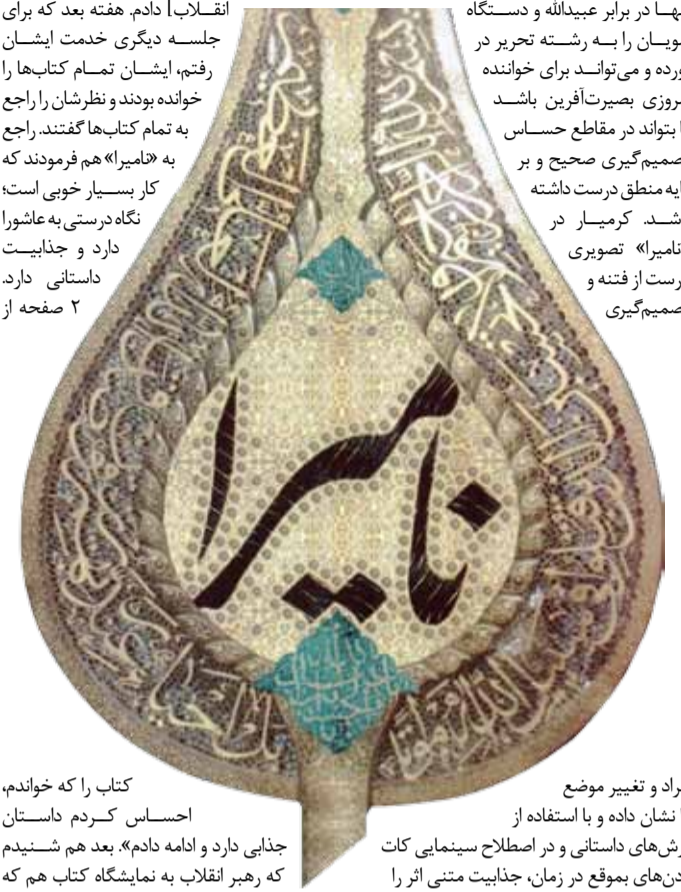 ـها در برابر عبیدالله و دستگاه
ـویان را به رشته تحریر در
ـورده و می‌تواند برای خواننده
ـروزی بصیرت‌آفرین باشد
ـا بتواند در مقاطع حساس
ـصمیم‌گیری صحیح و بر
ـایه منطق درست داشته
ـشد. کرمیار در
ـنامیرا» تصویری
ـرست از فتنه و
ـصمیم‌گیری
ـراد و تغییر موضع
ـا نشان داده و با استفاده از
ـرش‌های داستانی و در اصطلاح سینمایی کات
ـدن‌های بموقع در زمان، جذابیت متنی اثر را
انقلاب] دادم. هفته بعد که برای
جلسه دیگری خدمت ایشان
رفتم، ایشان تمام کتاب‌ها را
خوانده بودند و نظرشان را راجع
به تمام کتاب‌ها گفتند. راجع
به «نامیرا» هم فرمودند که
کار بسیار خوبی است؛
نگاه درستی به عاشورا
دارد و جذابیت
داستانی دارد.
۲ صفحه از
کتاب را که خواندم،
احساس کردم داستان
جذابی دارد و ادامه دادم». بعد هم شنیدم
که رهبر انقلاب به نمایشگاه کتاب هم که
نامیرا